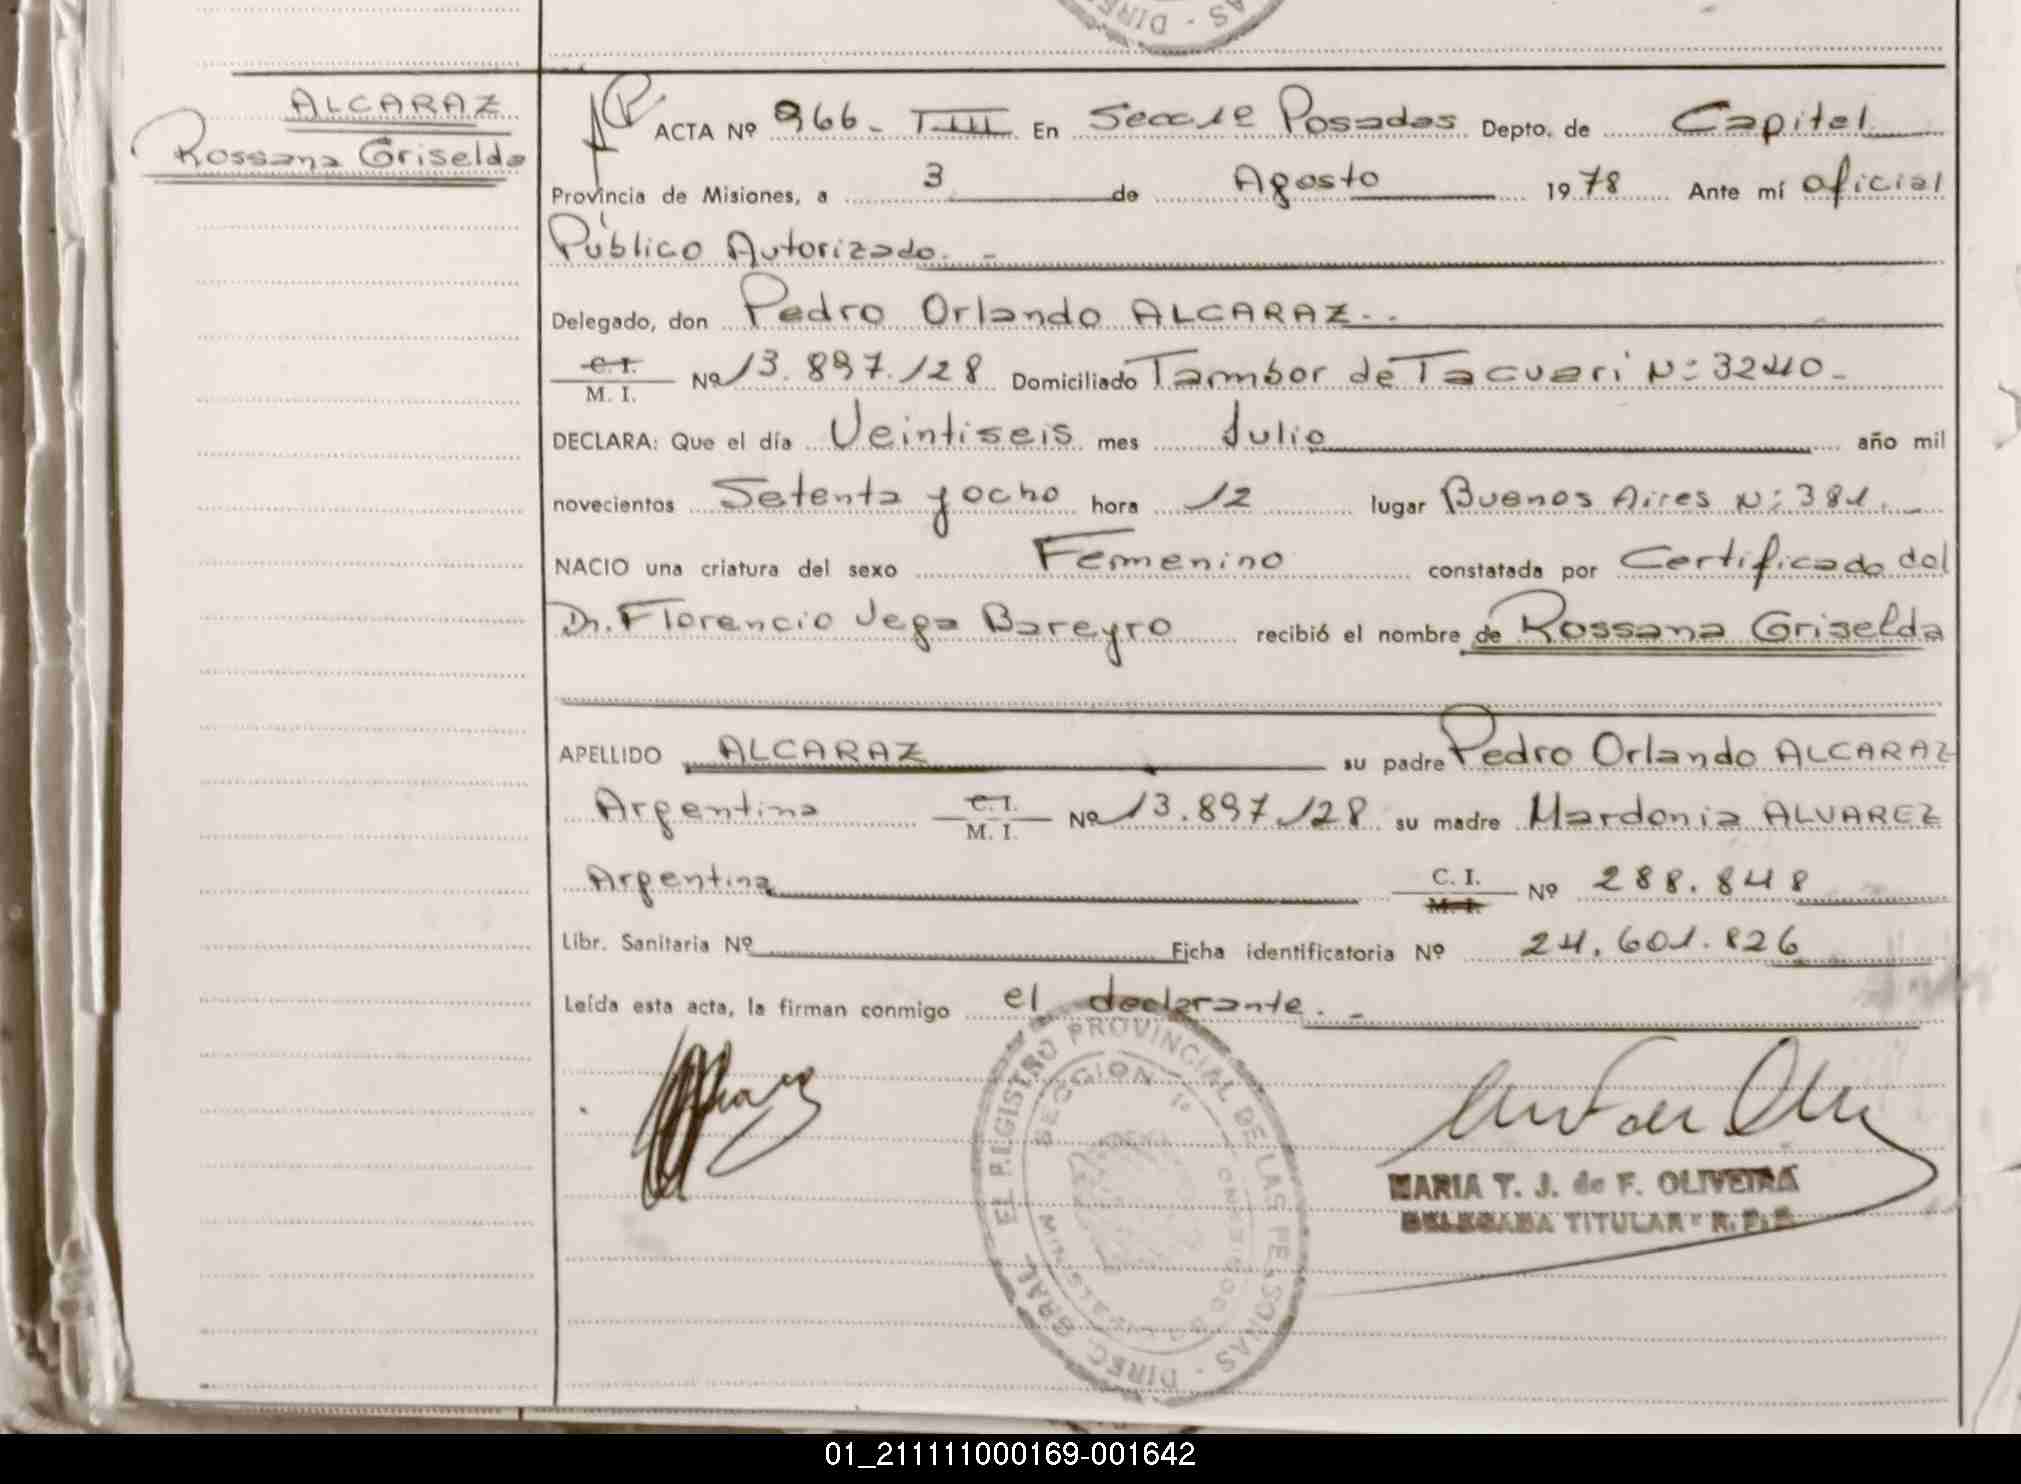 DIREC
ALCARAZ
Rossana Griselda
ACTA Nº 966- T-III En Secc 1ª Posadas Depto. de Capital
Provincia de Misiones, a 3 de Agosto 1978 Ante mí oficial
Público Autorizado. -
Delegado, don Pedro Orlando ALCARAZ..
C. I.
M. I. Nº 13.897.128 Domiciliado Tambor de Tacuari Nº 3240-
DECLARA: Que el día Veintiseis mes Julio año mil
novecientos Setenta y ocho hora 12 lugar Buenos Aires Nº 381. -
NACIO una criatura del sexo Femenino constatada por Certificado del
Dr. Florencio Vega Bareyro recibió el nombre de Rossana Griselda
APELLIDO ALCARAZ su padre Pedro Orlando ALCARAZ
Argentina C. I.
M. I. Nº 13.897.128 su madre Mardonia ALVAREZ
Argentina C. I.
M. I. Nº 288.848
Libr. Sanitaria Nº Ficha identificatoria Nº 24.601.826
Leída esta acta, la firman conmigo el declarante. -
DIREC. GRAL. EL REGISTRO PROVINCIAL DE LAS PERSONAS
SECCION 1ª
MARIA T. J. de F. OLIVEIRA
DELEGADA TITULAR - R. P. P.
01_211111000169-001642